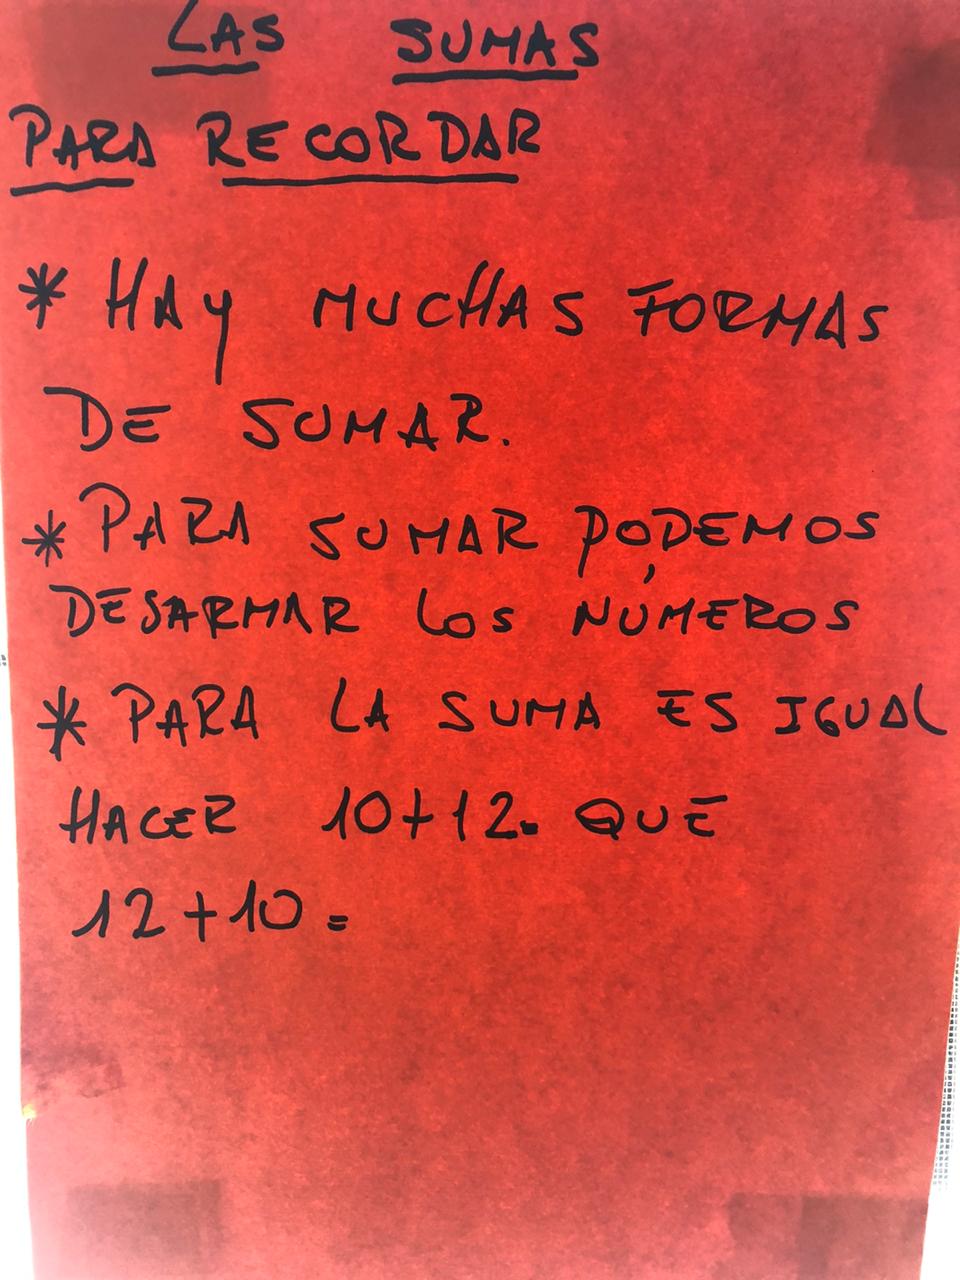 LAS SUMAS
PARA RECORDAR
* HAY MUCHAS FORMAS
DE SUMAR.
* PARA SUMAR PODEMOS
DESARMAR LOS NÚMEROS
* PARA LA SUMA ES IGUAL
HACER 10+12= QUE
12+10=